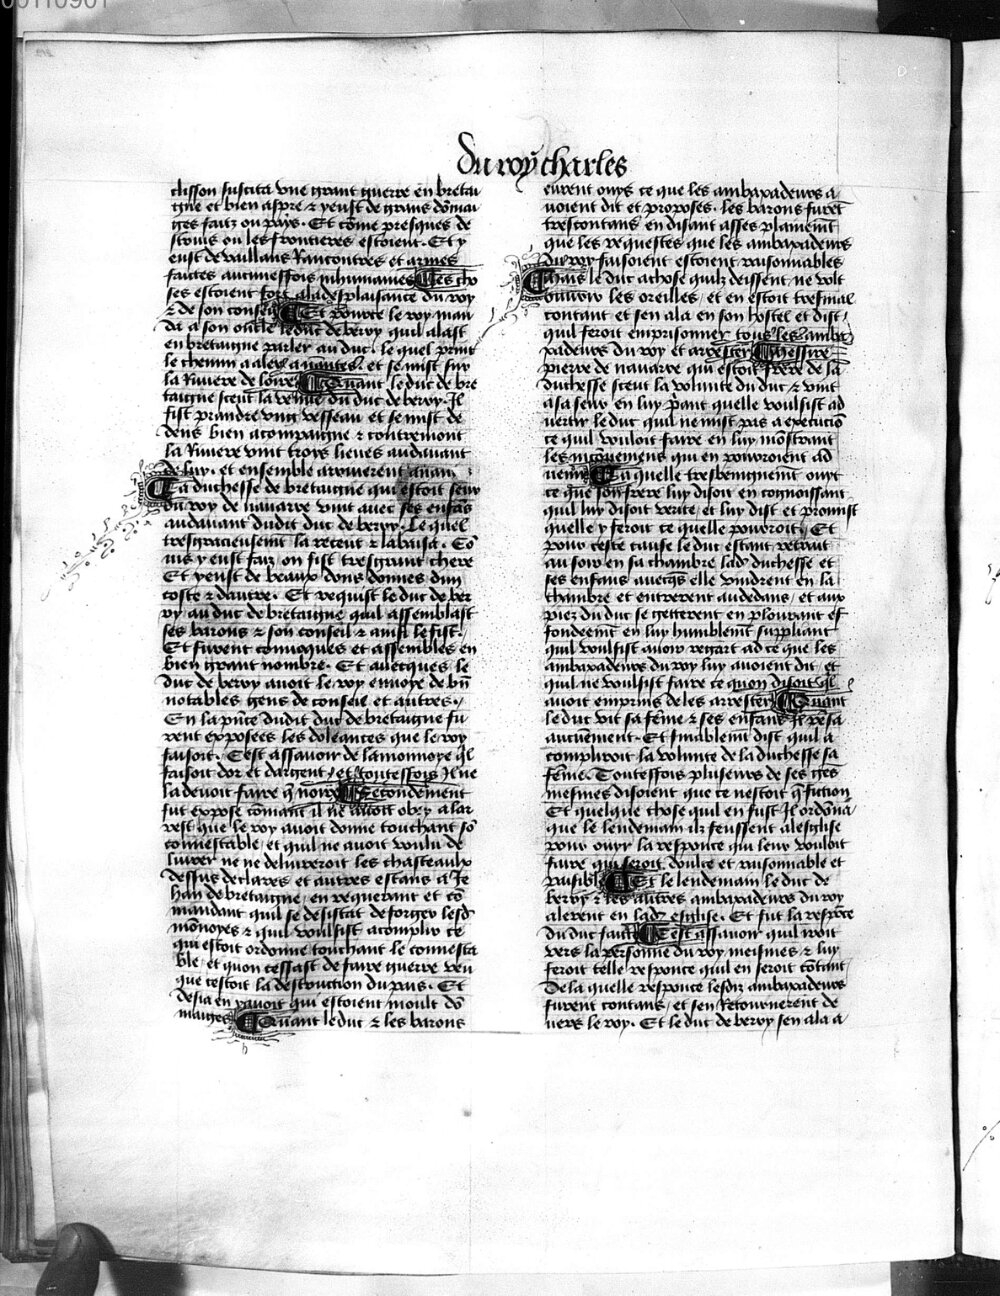 Du roy charles
clisson suscita vne grant guerre en bretai
gne et bien aspre & y eust de grans dōmai
ges faitz ou pays. Et cōme presques de
tous ou les frontieres estoient. Et y
eust de vaillans Rencontres et armes
faictes aucuneffois inhumaines Les cho
ses estoient fort a la desplaisance du roy
& de son conseil Et pource le roy man
da a son oncle le duc de berry quil alast
en bretaigne parler au duc. le quel print
le chemin a aler a nantes. et se mist sur
la Riuiere de loire Quant le duc de bre
taigne sceut la venue du duc de berry. Il
fist prandre vng vesseau et se mist de
dens bien acompaigne & contremont
la Riuiere vint troys lieues audauant
de luy. et ensemble arriuerent a nan
La duchesse de bretaigne qui estoit seur
du roy de nauarre vint auec ses enfās
audauant dudit duc de berry. Le quel
tresgracieusemt la receut & la baisa. Cō
me y eust faiz on fist tresgrant chere
Et y eust de beaux dons donnes dun
coste & dautre. Et requist le duc de ber
ry au duc de bretaigne quil assemblast
ses barons & son conseil & ainsi le fist.
Et furent conuoques et assembles en
bien grant nombre. Et auecques le
duc de berry auoit le roy enuoye de bn̄
notables gens de conseil et autres.
En la pn̄ce dudit duc de bretaigne fu
rent exposees les doleances que le roy
faisoit. Cest assauoir de la monnoye ql
faisoit dor et dargent, et toutesfois Il ne
la deuoit faire q̄ noire Secondement
fut expose cōmant il ne auoit obey a lar
rest que le roy auoit donne touchant sō
connestable, et quil ne auoit voulu de
liurer ne ne deliureroit les chasteaulx
dessus declares et autres estans a Je
han de bretaigne, en requerant et cō
mandant quil se desistat de forger lesd
mōnoyes & quil voulsist acomplir ce
qui estoit ordonne touchant le connesta
ble, et quon cessast de faire guerre veu
que cestoit la destruction du pais. Et
desia en y auoit qui estoient moult dō
maiges Quant le duc & les barons
eurent ouys ce que les ambaxadeurs a
uoient dit et proposes. les barons furēt
trescontans en disant asses plainemt
que les requestes que les ambaxadeurs
du roy faisoient estoient raisonnables
Mais le duc a chose quilz deissent, ne volt
ouurir les oreilles, et en estoit tresmal
contant et sen ala en son hostel et dist,
quil feroit emprisonner tous les amba
xadeurs du roy et arrester Messire
pierre de nauarre qui estoit frere de la
duchesse sceut la volunte du duc & vint
a sa seur en luy priant quelle voulsist ad
uertir le duc quil ne mist pas a execuciō
ce quil vouloit faire en luy mōstrant
les incōueniens qui en pourroient ad
uenir La quelle tresbenignemt ouyt
ce que son frere luy disoit en cognoissant
quil luy disoit verite, et luy dist et promist
quelle y feroit ce quelle pourroit. Et
pour ceste cause le duc estant retrait
au soir en sa chambre ladc duchesse et
ses enfans auecqs elle vindrent en la
chambre et entrerent audedans, et aux
piez du duc se getterent en plourant et
fondeemt en luy humblemt suppliant
quil voulsist auoir regart ad ce que les
ambaxadeurs du roy luy auoient dit, et
quil ne voulsist faire ce quon disoit ql
auoit emprins de les arrester Quant
le duc vit sa fēme & ses enfans Il pēsa
aucunemt. Et finablemt dist quil a
compliroit la volunte de la duchesse sa
fēme. Toutesfois plusieurs de ses gēs
mesmes disoient que ce nestoit q̄ fiction
Et quelque chose quil en fust Il ordōna
que le lendemain ilz feussent a leglise
pour ouyr la responce qui leur vouloit
faire qui seroit doulce et raisonnable et
paisible Et le lendemain le duc de
berry & les autres ambaxadeurs du roy
alerent en ladc esglise. Et fut la respōce
du duc faicte Cest assauoir quil iroit
vers la personne du roy mesmes & luy
feroit telle responce quil en seroit cōtant
De la quelle responce lesdiz ambaxadeurs
furent contans, et sen Retournerent de
uers le roy. Et le duc de berry sen ala a